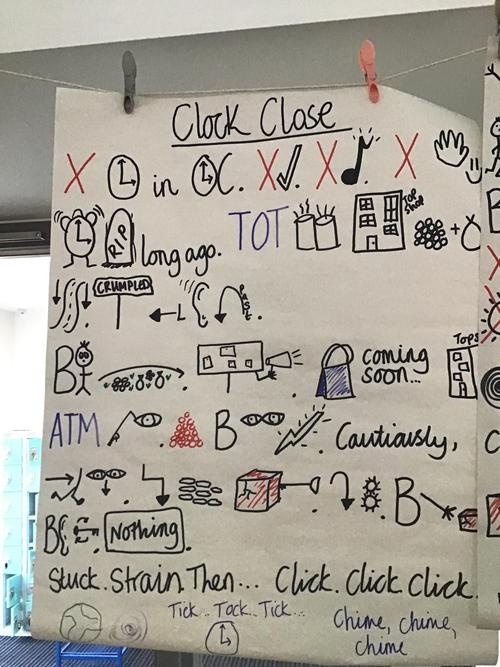 Clock Close
X in C. X X X
RIP long ago. TOT TOP SHOP +
CRUMPLED L PAST.
B coming soon... Tops
ATM B Cautiously,
B
B Nothing.
Stuck. Strain. Then... Click. Click. Click.
Tick.. Tock.. Tick...
Chime, chime,
chime